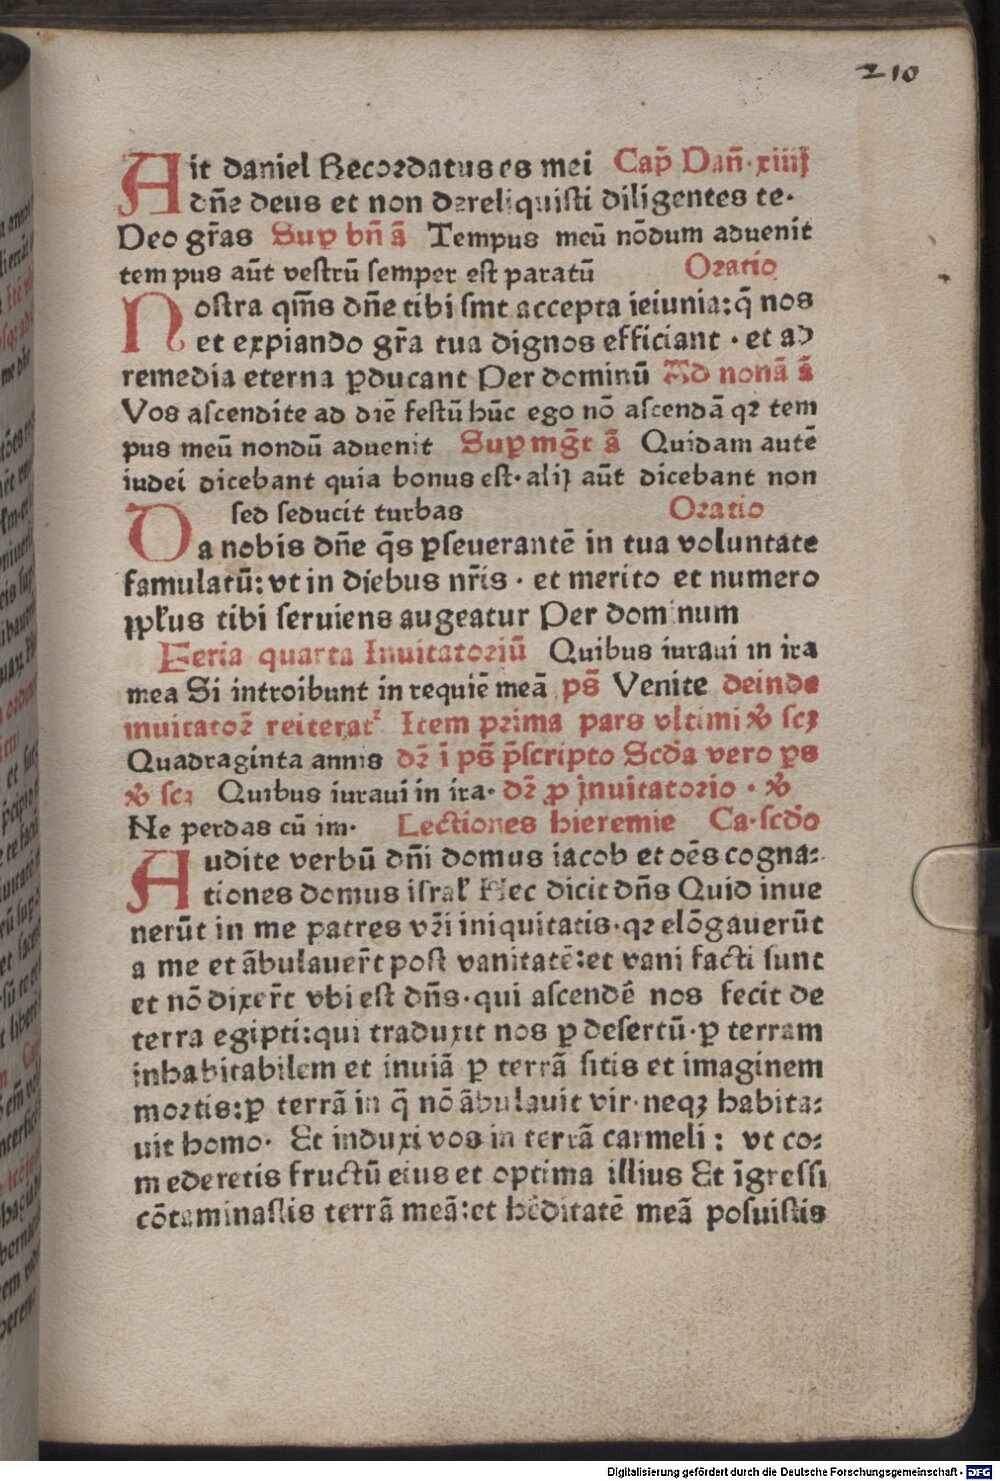 210
Ait daniel Recordatus es mei Cap̄ Dan̄·xiiij
dn̄e deus et non dereliquisti diligentes te·
Deo gr̄as Sup bn̄ ā Tempus meū nōdum aduenit
tem pus aūt vestrū semper est paratū Oratio
Nostra qm̄s dn̄e tibi sint accepta ieiunia:q̄ nos
et expiando gr̄a tua dignos efficiant · et ad
remedia eterna ꝑducant Per dominū Ad nonā ā
Vos ascendite ad diē festū hūc ego nō ascendā qꝛ tem
pus meū nondū aduenit Sup mḡt ā Quidam autē
iudei dicebant quia bonus est·alij aūt dicebant non
sed seducit turbas Oratio
Da nobis dn̄e q̄s ꝑseuerantē in tua voluntate
famulatū:vt in diebus nr̄is · et merito et numero
ppl̄us tibi seruiens augeatur Per dominum
Feria quarta Inuitatoriū Quibus iuraui in ira
mea Si introibunt in requiē meā ps̄ Venite deinde
inuitatoꝛ̄ reiterat᷑ Item prima pars vltimi ꝟ scꝫ
Quadraginta annis dꝛ̄ ī ps̄ p̄scripto Scd̄a vero ꝑs
ꝟ scꝫ Quibus iuraui in ira· dꝛ̄ ꝓ inuitatorio · ꝟ
Ne perdas cū im· Lectiones hieremie Ca·scd̄o
Audite verbū dn̄i domus iacob et oēs cogna⸗
tiones domus israł Hec dicit dn̄s Quid inue
nerūt in me patres vr̄i iniquitatis·qꝛ elōgauerūt
a me et ābulauer̄t post vanitatē:et vani facti sunt
et nō dixer̄t vbi est dn̄s·qui ascendē nos fecit de
terra egipti:qui traduxit nos ꝑ desertū·ꝑ terram
inhabitabilem et inuiā ꝑ terrā sitis et imaginem
mortis:ꝑ terrā in q̄ nō ābulauit vir·neqꝫ habita⸗
uit homo· Et induxi vos in terrā carmeli : vt co⸗
m ederetis fructū eius et optima illius Et īgressi
cōtaminastis terrā meā:et hēditatē meā posuistis
Digitalisierung gefördert durch die Deutsche Forschungsgemeinschaft - DFG